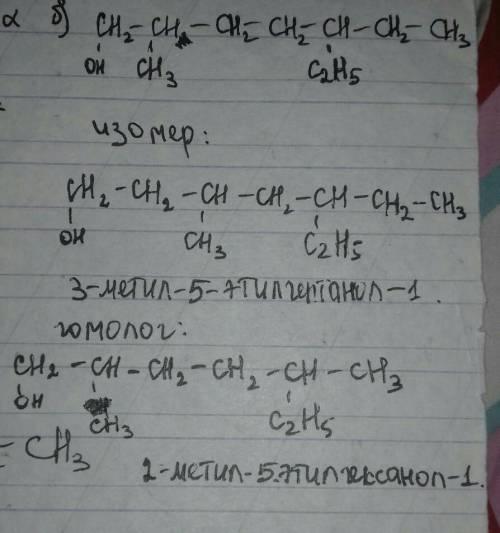 α б) CH₂ – CH – CH₂ – CH₂ – CH – CH₂ – CH₃
OH CH₃ C₂H₅
изомер:
CH₂ – CH₂ – CH – CH₂ – CH – CH₂ – CH₃
OH CH₃ C₂H₅
3-метил-5-этилгептанол-1.
гомолог:
CH₂ – CH – CH₂ – CH₂ – CH – CH₃
OH CH₃ C₂H₅
– CH₃
2-метил-5-этилгексанол-1.